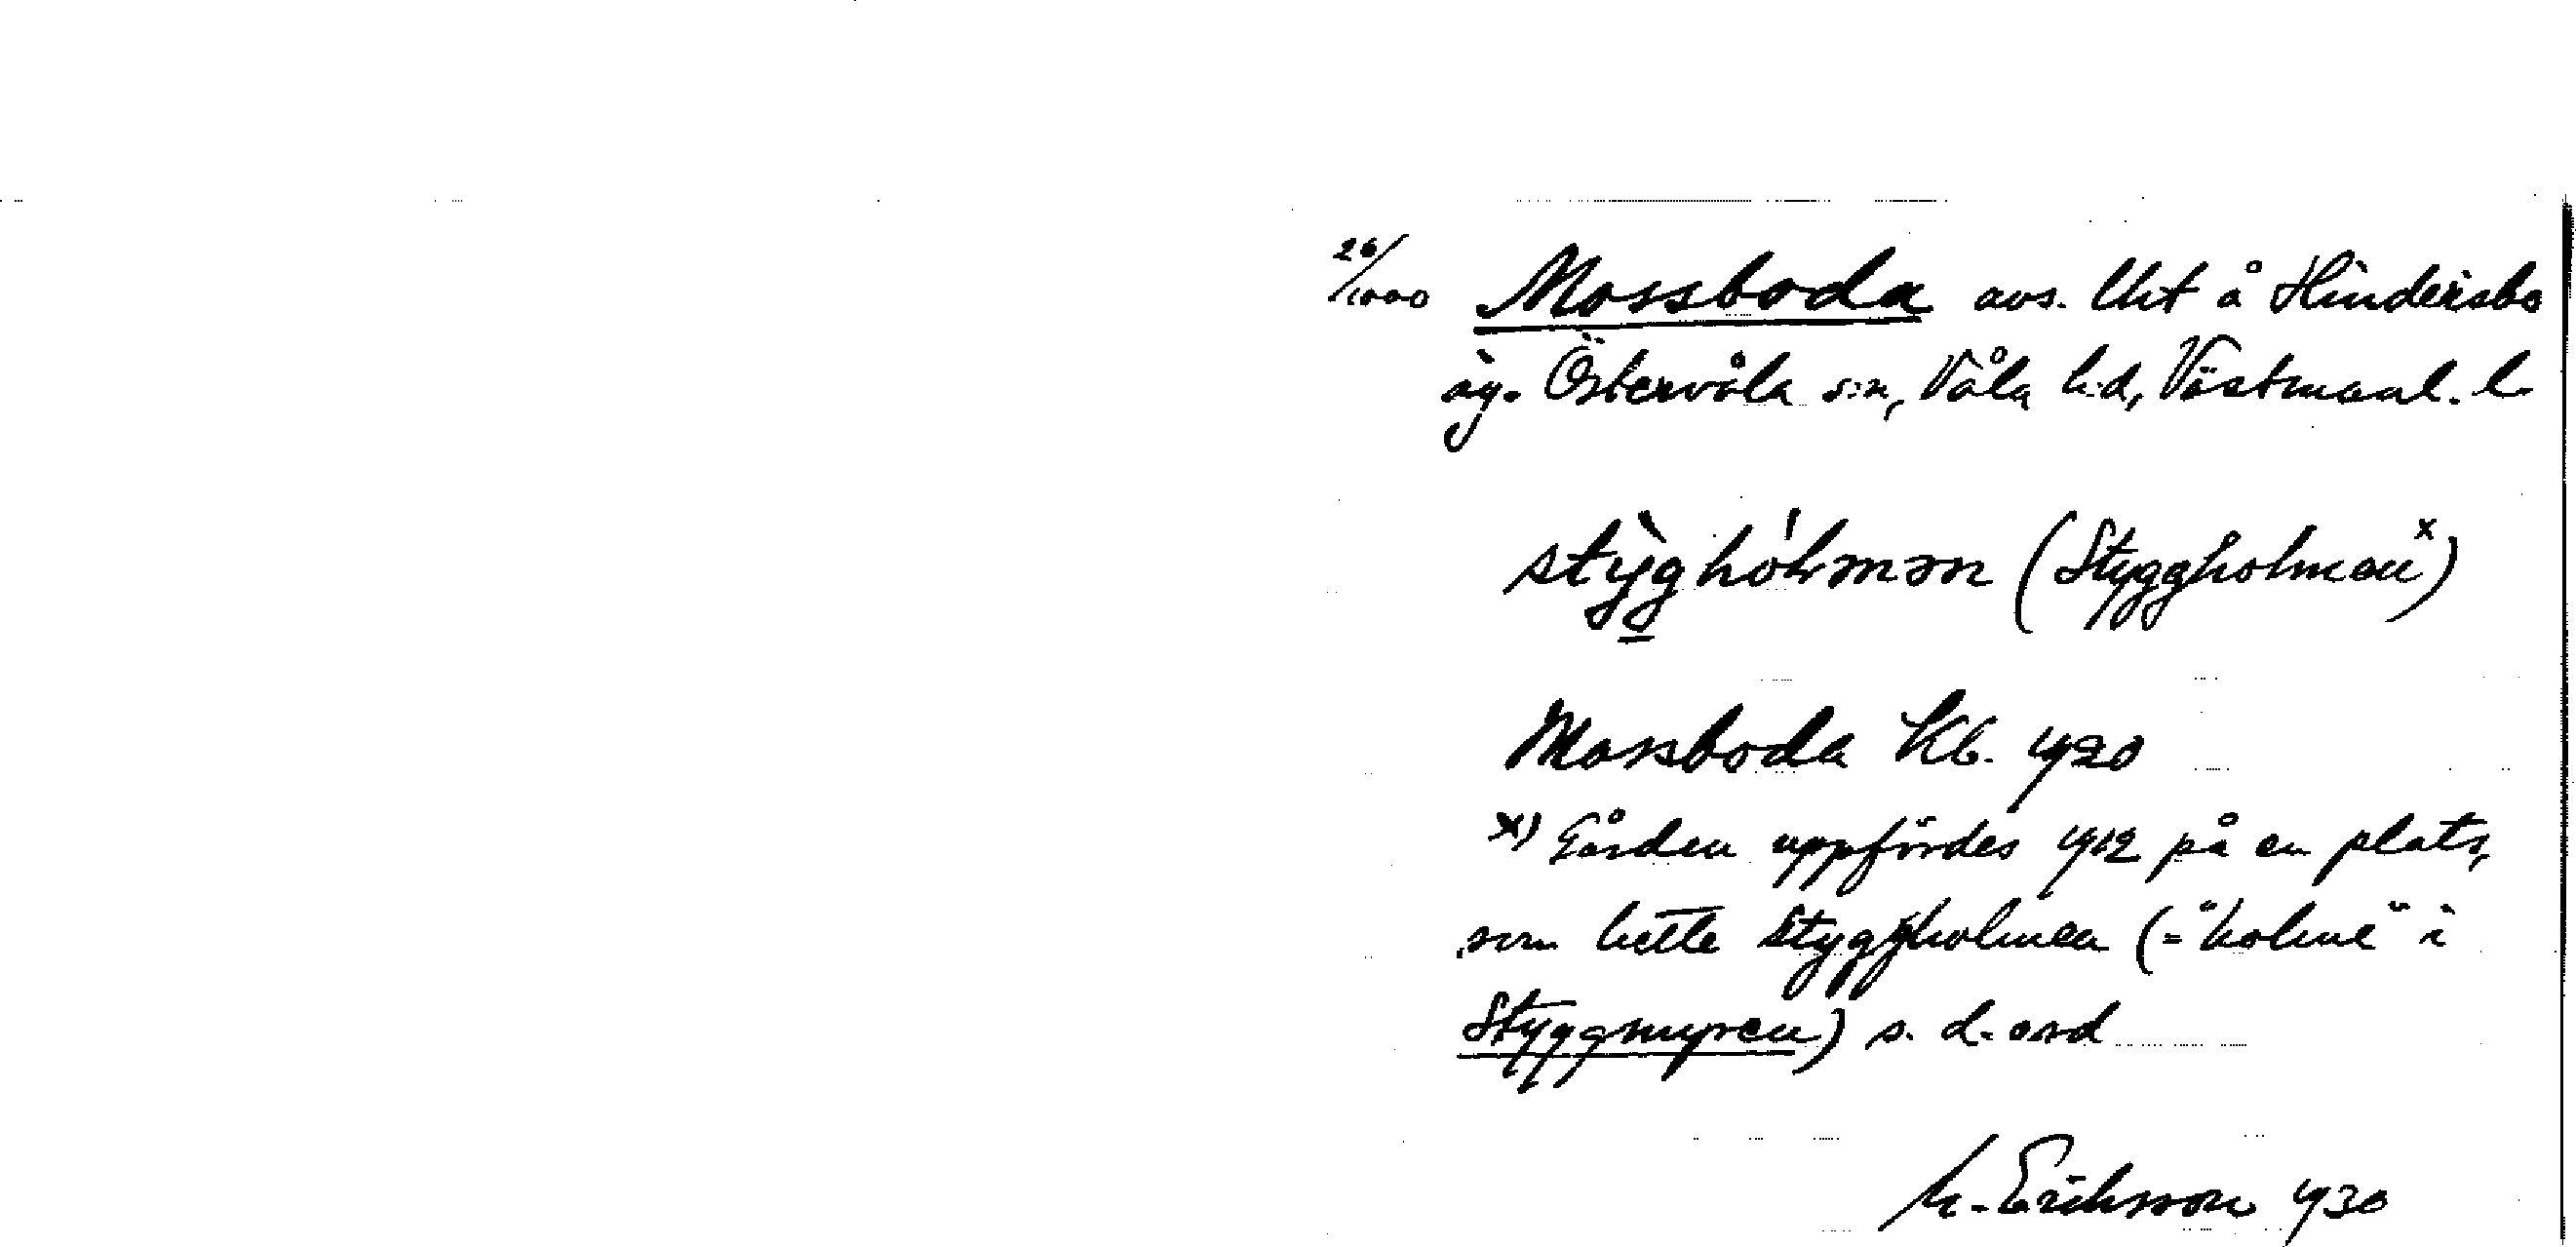 26/1000 Mossboda avs. lht å Hindersbo
äg. Östervåla s:n, Våla h:d, Västmanl. l.
stỳg hólmən (Styggholmen x)
Mossboda Kb. 1920
x) Gården uppfördes 1912 på en plats,
som hette Styggholmen (= "holme" i
Styggmyren) s. d. ord
M. Eriksson 1930